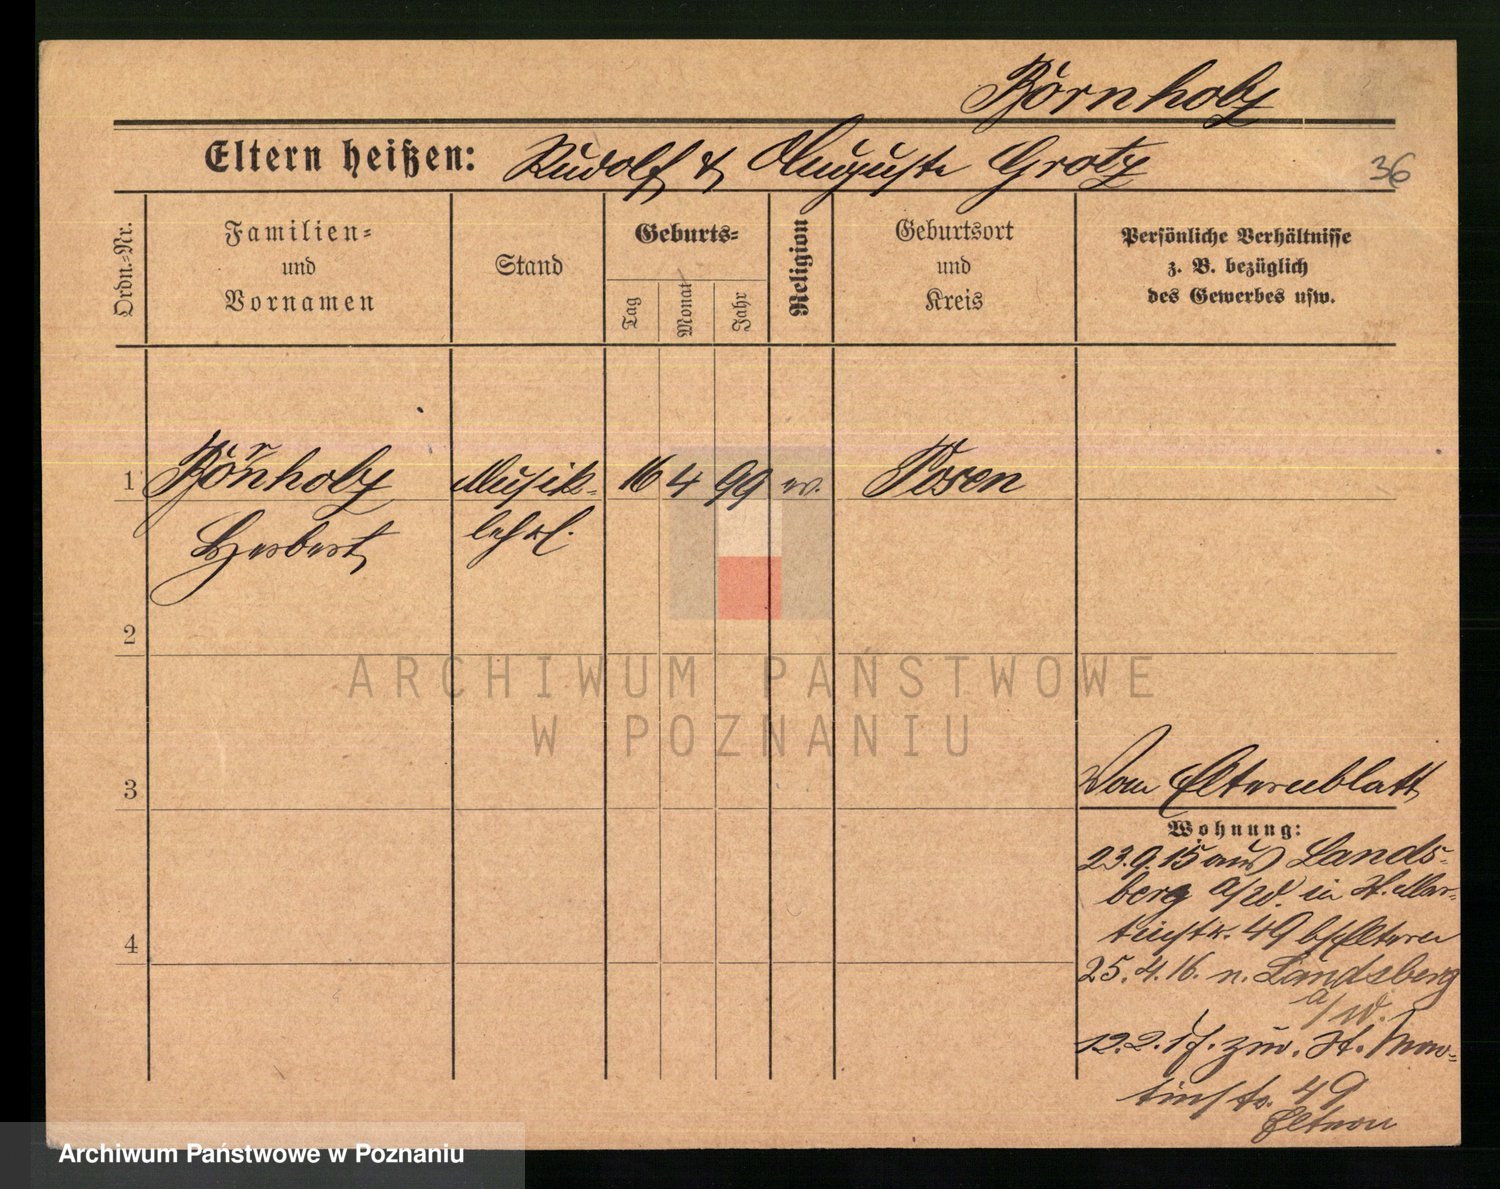 Börnholz
Eltern heißen: Rudolf & Auguste Grotz
36
Ordn.=Nr.
Familien=
und
Vornamen
Stand
Geburts=
Tag
Monat
Jahr
Religion
Geburtsort
und
Kreis
Persönliche Verhältnisse
z. B. bezüglich
des Gewerbes usw.
1 Börnholz Musik- 16 4 99 ev. Posen
Herbert lehrl.
2
ARCHIWUM PAŃSTWOWE
W POZNANIU
3
Vom Elternblatt
Wohnung:
23.9.15 aus Lands-
berg a/W. in St. Mar-
tinstr. 49 b/Eltern
4
25.4.16. n. Landsberg
a/W.
12.2.17. zur. St. Mar-
tinstr. 49
Eltern
Archiwum Państwowe w Poznaniu